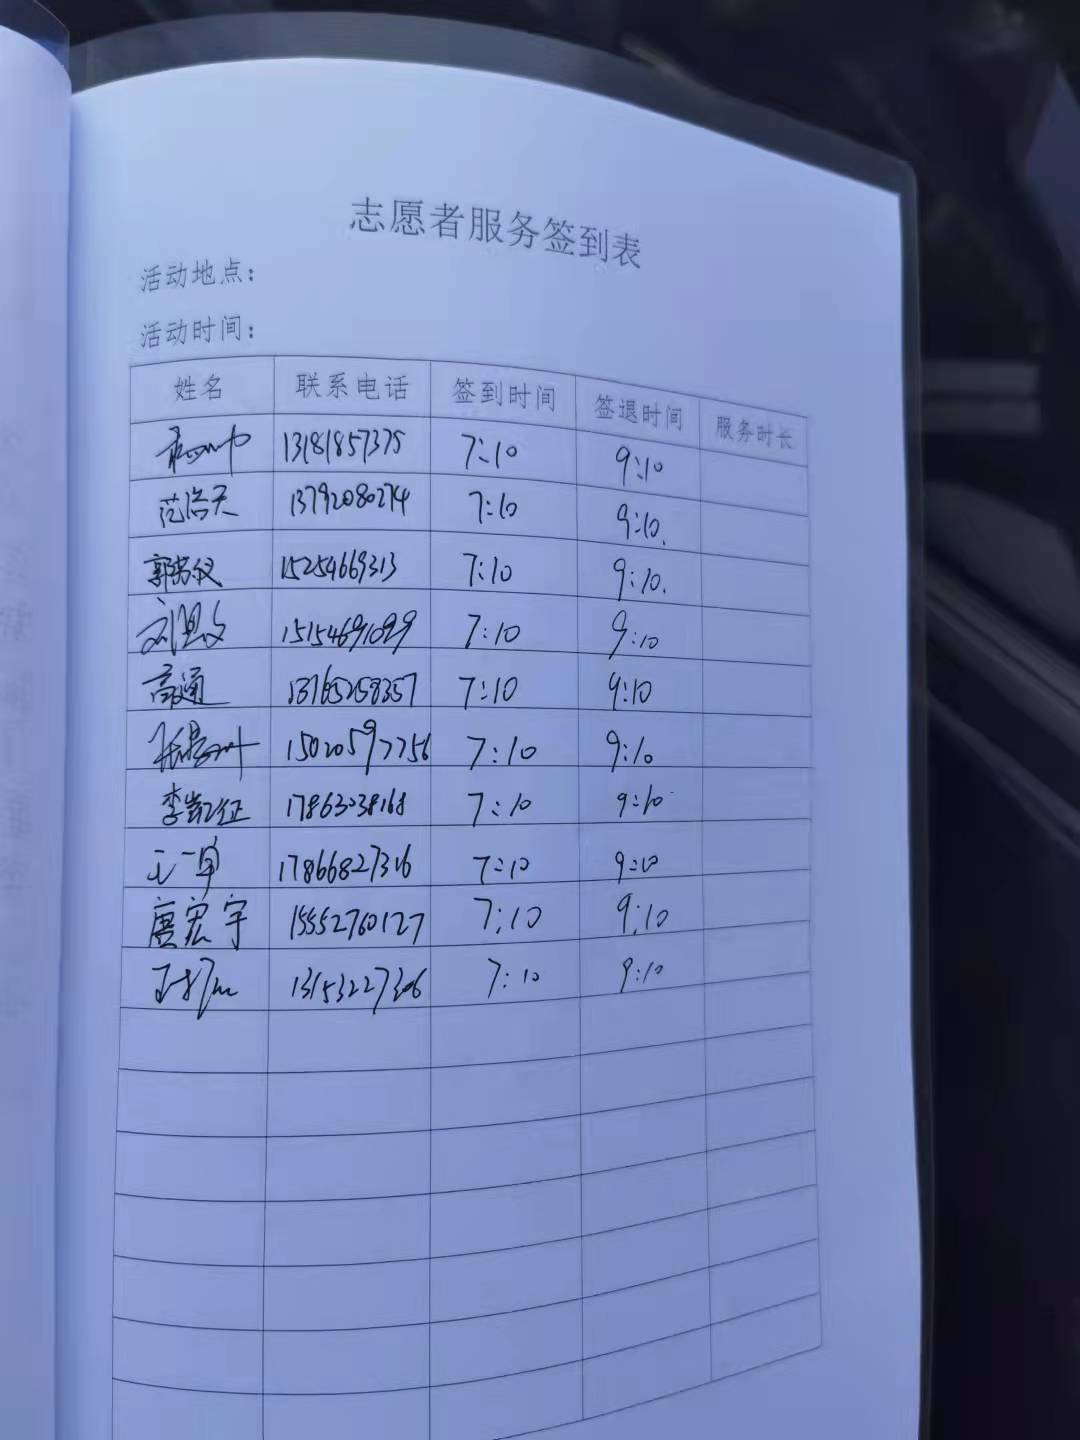 志愿者服务签到表
活动地点：
活动时间：
姓名 联系电话 签到时间 签退时间 服务时长
13181857375 7:10 9:10
范浩天 13792080274 7:10 9:10.
郭 仪 15254669313 7:10 9:10.
刘思文 15154691099 7:10 9:10
高通 13765258357 7:10 9:10
张 15020597756 7:10 9:10
李凯征 17863038168 7:10 9:10
王一单 17866827316 7:10 9:10
唐宏宇 15552760127 7:10 9:10
13153227306 7:10 9:10